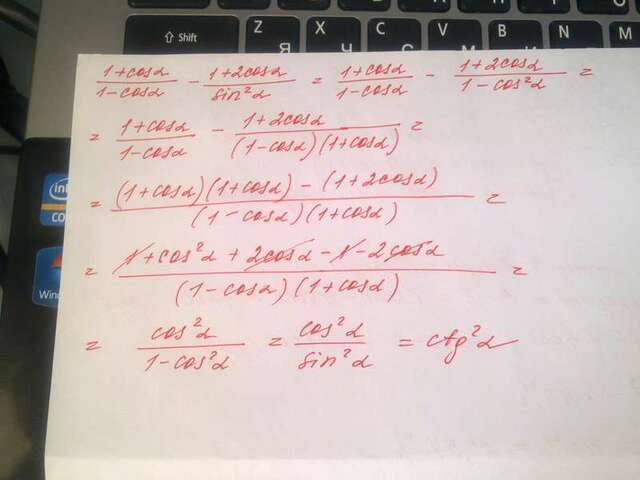 ⇧ Shift
Z Я X Ч C
intel
CO
Wind
(1+cosα)/(1-cosα) - (1+2cosα)/(sin²α) = (1+cosα)/(1-cosα) - (1+2cosα)/(1-cos²α) =
= (1+cosα)/(1-cosα) - (1+2cosα)/((1-cosα)(1+cosα)) =
= ((1+cosα)(1+cosα) - (1+2cosα))/((1-cosα)(1+cosα)) =
= (1+cos²α + 2cosα - 1 - 2cosα)/((1-cosα)(1+cosα)) =
= cos²α/(1-cos²α) = cos²α/sin²α = ctg²α